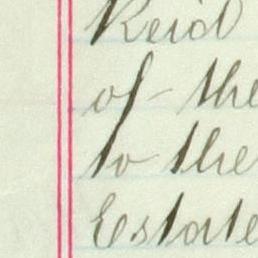 Reid
of the
to the
Estate